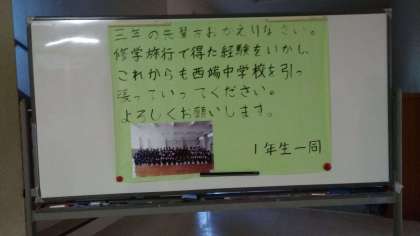 三年の先輩方おかえりなさい。
修学旅行で得た経験をいかし、
これからも西端中学校を引っ
張っていってください。
よろしくお願いします。
1年生一同